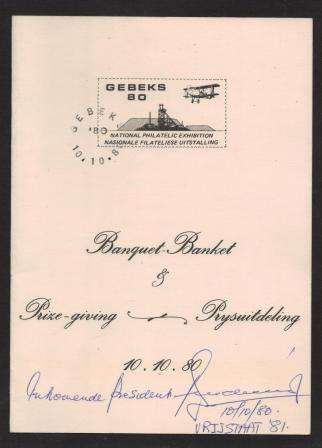 GEBEKS
80
NATIONAL PHILATELIC EXHIBITION
NASIONALE FILATELIESE UITSTALLING
GEBEK
'80
10.10.8
Banquet-Banket
&
Prize-giving Prysuitdeling
10.10.80
Inkomende President
10/10/80.
VRYSTAAT '81.